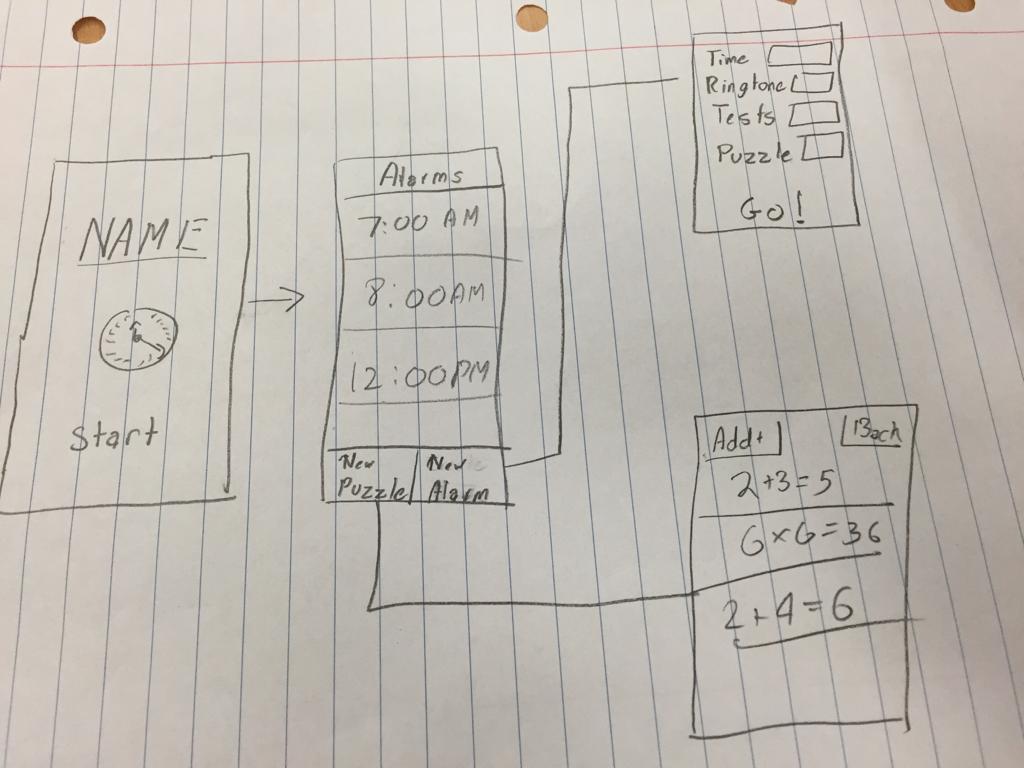 NAME
Start
Alarms
7:00 AM
8:00 AM
12:00 PM
New
Puzzle
New
Alarm
Time
Ringtone
Tests
Puzzle
Go!
Add+
Back
2+3=5
6×6=36
2+4=6